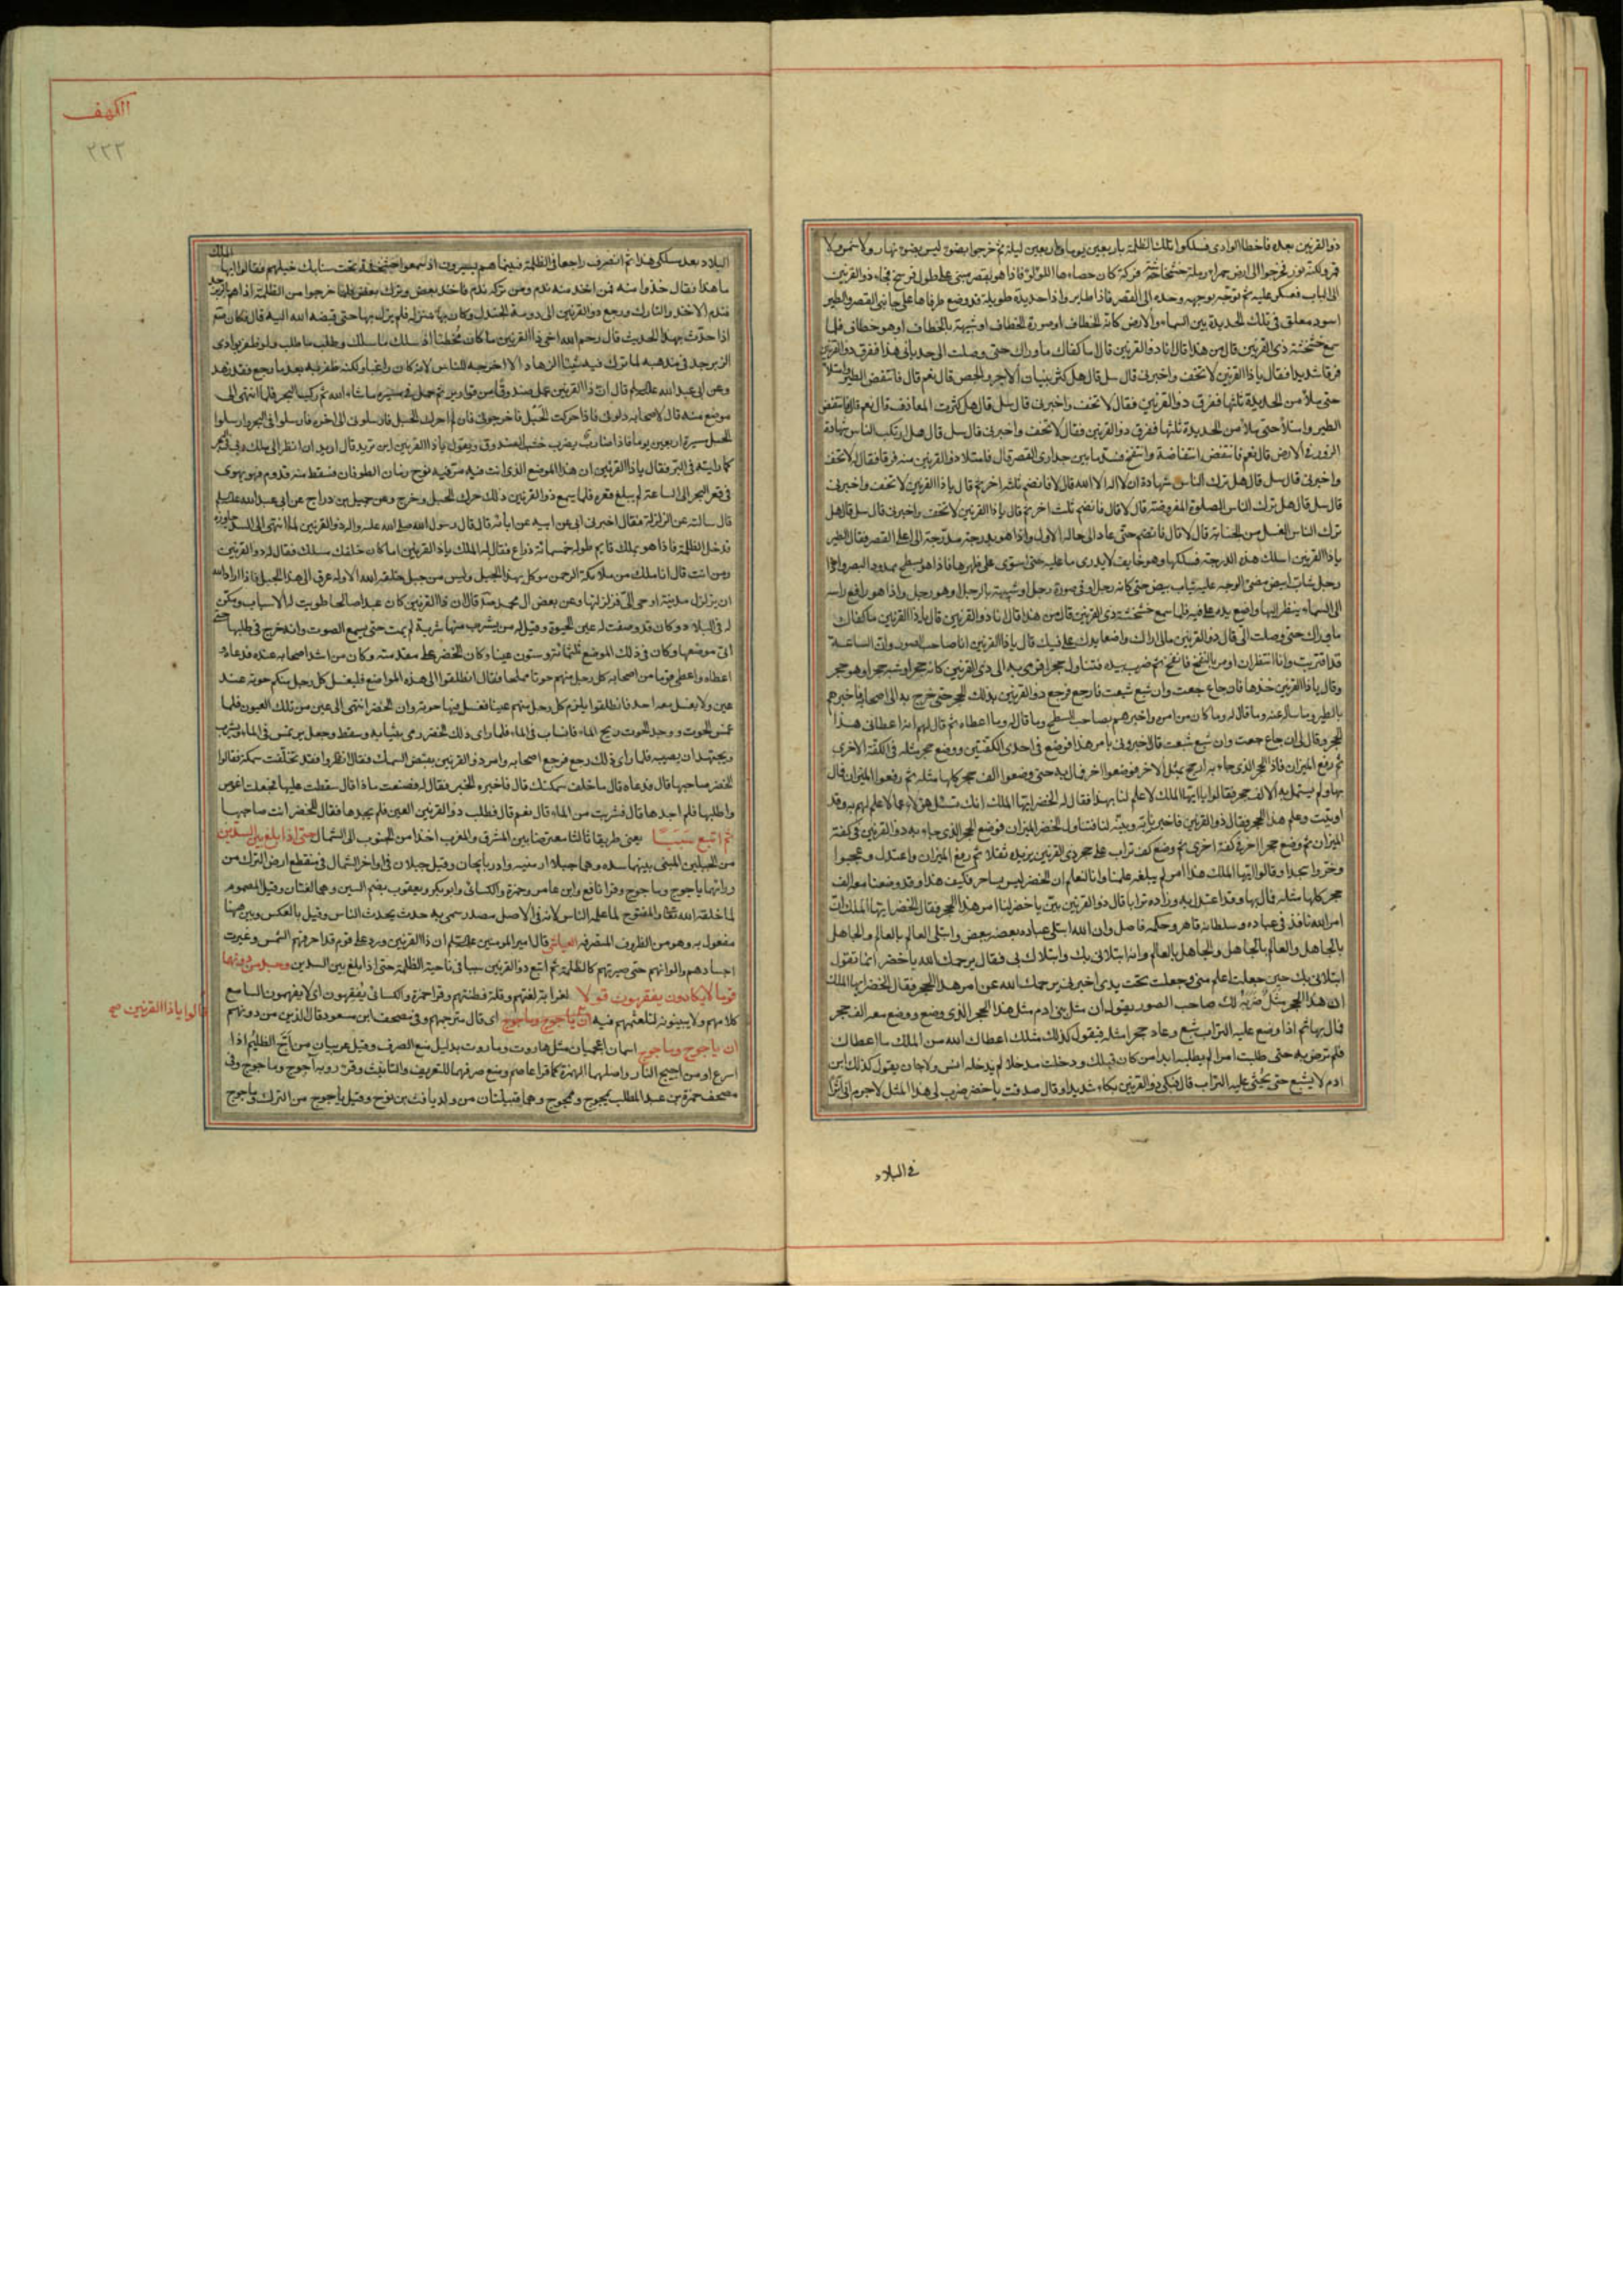 ذو القرنين بعده فاخطا الوادى فسلكوا تلك الظلمة باربعين يوما واربعين ليلة ثم خرجوا بضوء ليس بضوء نهار ولا شمس ولا
قمر ولكنه نور فخرجوا الى ارض حمراء رملة خشخاشة فركة كان حصاءها اللؤلؤ فاذا هو بقصر مبنى على طول فرسخ فجاء ذو القرنين
الى الباب فعسكر عليه ثم توجه بوجهه وحده الى القصر فاذا طاير واذا حديدة طويلة قد وضع طرفاها على جانبى القصر والطير
اسود معلق فى تلك الحديدة بين السماء والارض كانه الخطاف او صورة الخطاف او شبيهة بالخطاف او هو خطاف فلما
سمع خشخشة ذى القرنين قال من هذا قال انا ذو القرنين قال اما كفاك ما وراك حتى وصلت الى حد بابى هذا ففرق ذو القرنين
فرقا شديدا فقال ياذا القرنين لا تخف واخبرنى قال سل قال هل كثر بنيان الاجر والجص قال نعم قال فانتفض الطير وامتلأ
حتى ملأ من الحديدة ثلثها ففرق ذو القرنين فقال لا تخف واخبرنى قال سل قال هل كثرت المعازف قال نعم قال فانتفض
الطير وامتلأ حتى ملأ من الحديدة ثلثها ففرق ذو القرنين فقال لا تخف واخبرنى قال سل قال هل ارتكب الناس شهادة
الزور فى الارض قال نعم فانتفض انتفاضة وانتفخ فسد ما بين جدارى القصر قال فامتلا ذو القرنين منه فرقا فقال له لا تخف
واخبرنى قال سل قال هل ترك الناس شهادة ان لا اله الا الله قال لا فانضم ثلثه اخر ثم قال ياذا القرنين لا تخف واخبرنى
قال سل قال هل ترك الناس الصلوة المفروضة قال لا قال فانضم ثلث اخر ثم قال ياذا القرنين لا تخف واخبرنى قال سل قال هل
ترك الناس الغسل من الجنابة قال لا قال فانضم حتى عاد الى حاله الاول واذا هو بدرجة مدرجة الى اعلا القصر فقال الطير
ياذا القرنين اسلك هذه الدرجة فسلكها وهو خايف لا يدرى ما عليه حتى استوى على ظهرها فاذا هو بسطح ممدود البصر واذا
رجل شاب ابيض مضئ الوجه عليه ثياب بيض حتى كانه رجل او فى صورة رجل او شبيه بالرجل او هو رجل واذا هو رافع راسه
الى السماء ينظر اليها واضع يده على فيه فلما سمع خشخشة ذى القرنين قال من هذا قال انا ذو القرنين قال ياذا القرنين ما كفاك
ما وراك حتى وصلت الى قال ذو القرنين مالى اراك واضعا يدك على فيك قال ياذا القرنين انا صاحب الصور وان الساعة
قد اقتربت وانا انتظر ان اومر بالنفخ فانفخ ثم ضرب بيده فتناول حجرا فرمى به الى ذى القرنين كانه حجر او شبه حجر او هو حجر
وقال ياذا القرنين خذها فان جاع جعت وان شبع شبعت فارجع فرجع ذو القرنين بذلك الحجر حتى خرج به الى اصحابه فاخبرهم
بالطير وما ساله عنه وما قال له وما كان من امره واخبرهم بصاحب السطح وما قال له وما اعطاه ثم قال لهم انه اعطانى هذا
الحجر وقال لى ان جاع جعت وان شبع شبعت قال اخبرونى بامر هذا فوضع فى احدى الكفتين ووضع حجر مثله فى الكفة الاخرى
ثم رفع الميزان فاذا الحجر الذى جاء به ارجح بمثل الاخر فوضعوا اخر فمال به حتى وضعوا الف حجر كلها مثله ثم رفعوا الميزان فمال
بها ولم يستمل به الالف حجر فقالوا ياايها الملك لا علم لنا بهذا فقال له الخضر ايها الملك انك تسئل هؤلاء عما لا علم لهم به وقد
اوتيت وعلم هذا الحجر فقال ذو القرنين فاخبرنا به وبينه لنا فتناول الخضر الميزان فوضع الحجر الذى جاء به ذو القرنين فى كفة
الميزان ثم وضع حجرا اخر فى كفة اخرى ثم وضع كف تراب على حجر ذى القرنين يزيده ثقلا ثم رفع الميزان واعتدل وعجبوا
وخروا سجدا وقالوا ايها الملك هذا امر لم يبلغه علمنا وانا لنعلم ان الخضر ليس بساحر فكيف هذا وقد وضعنا معه الف
حجر كلها مثله فمال بها وقد اعتدل به وزاده ترابا قال ذو القرنين بين ياخضر لنا امر هذا الحجر فقال الخضر ايها الملك ان
امر الله نافذ فى عباده وسلطانه قاهر وحكمه فاصل وان الله ابتلى عباده بعضهم ببعض وابتلى العالم بالعالم والجاهل
بالجاهل والعالم بالجاهل والجاهل بالعالم وانه ابتلانى بك وابتلاك بى فقال يرحمك الله ياخضر انما تقول
ابتلانى بك حين جعلت اعلم منى وجعلت تحت يدى اخبرنى يرحمك الله عن امر هذا الحجر فقال الخضر ايها الملك
ان هذا الحجر مثل ضربه لك صاحب الصور يقول ان مثل بنى ادم مثل هذا الحجر الذى وضع ووضع معه الف حجر
فمال بها ثم اذا وضع عليه التراب شبع وعاد حجرا مثله فيقول كذلك مثلك اعطاك الله من الملك ما اعطاك
فلم ترض به حتى طلبت امرا لم يطلبه ابدا من كان قبلك ودخلت مدخلا لم يدخله انس ولا جان يقول كذلك ابن
ادم لا يشبع حتى يحثى عليه التراب قال فبكى ذو القرنين بكاء شديدا وقال صدقت ياخضر ضرب لى هذا المثل لا جرم انى
فى البلاد
الكهف
٢٣٣
البلاد بعد سلكى هذا ثم انصرف راجعا فى الظلمة فبينما هم يسيرون اذ سمعوا خشخشة تحت سنابك خيلهم فقالوا ايها الملك
ما هذا فقال خذوا منه فمن اخذ منه ندم ومن تركه ندم فاخذ بعض وترك بعض فلما خرجوا من الظلمة اذا هم بالزبرجد
فندم الاخذ والتارك ورجع ذو القرنين الى دومة الجندل وكان بها منزله فلم يزل بها حتى قبضه الله اليه قال فكان ص
اذا حدث بهذا الحديث قال رحم الله اخى ذا القرنين ما كان مخطئا اذ سلك ما سلك وطلب ما طلب ولو ظفر بوادى
الزبرجد فى مذهبه لما ترك فيه شيئا الا اخرجه للناس لانه كان راغبا ولكنه ظفر به بعد ما رجع فقد زهد
وعن ابى عبد الله عليه السلم قال ان ذا القرنين عمل صندوقا من قوارير ثم حمل فى مسيره ما شاء الله ثم ركب البحر فلما انتهى الى
موضع منه قال لاصحابه دلونى فاذا حركت الحبل فاخرجونى فان لم احرك الحبل فارسلونى الى اخره فارسلوه فى البحر وارسلوا
الحبل مسيرة اربعين يوما فاذا ضارب يضرب جنب الصندوق ويقول ياذا القرنين اين تريد قال اريد ان انظر الى ملك ربى فى البحر
كما رايته فى البر فقال ياذا القرنين ان هذا الموضع الذى انت فيه مر فيه نوح زمان الطوفان فسقط منه قدوم فهو يهوى
فى قعر البحر الى الساعة لم يبلغ قعره فلما سمع ذو القرنين ذلك حرك الحبل وخرج وعن جميل بن دراج عن ابى عبد الله عليه السلم
قال سالته عن الزلزلة فقال اخبرنى ابى عن ابيه عن ابائه قال قال رسول الله صلى الله عليه واله ذو القرنين لما انتهى الى السد جاوزه
فدخل الظلمة فاذا هو بملك قايم طوله خمسمائة ذراع فقال له الملك ياذا القرنين اما كان خلفك مسلك فقال له ذو القرنين
ومن انت قال انا ملك من ملائكة الرحمن موكل بهذا الجبل وليس من جبل خلقه الله الا وله عرق الى هذا الجبل فاذا اراد الله
ان يزلزل مدينة اوحى الى فزلزلتها وعن بعض ال محمد منه قال ان ذا القرنين كان عبدا صالحا طويت له الاسباب ومكن
له فى البلاد وكان قد وصفت له عين الحيوة وقيل له من يشرب منها شربة لم يمت حتى يسمع الصوت وانه خرج فى طلبها حتى
اتى موضعها وكان فى ذلك الموضع ثلثمائة وستون عينا وكان الخضر على مقدمته وكان من اشد اصحابه عنده فدعاه
اعطاه واعطى قوما من اصحابه كل رجل منهم حوتا مملحا فقال انطلقوا الى هذه المواضع فليغسل كل رجل منكم حوته عند
عين ولا يغسل معه احد فانطلقوا يلزم كل رجل منهم عينا فغسل فيها حوته وان الخضر انتهى الى عين من تلك العيون فلما
غمس الحوت ووجد الحوت ريح الماء فانساب فى الماء فلما راى ذلك الخضر رمى بثيابه وسقط وجعل يرتمس فى الماء ويشرب
ويجتهد ان يصيبه فلما راى ذلك رجع فرجع اصحابه وامر ذو القرنين بقبض السمك فقال انظروا فقد تخلفت سمكة فقالوا
الخضر صاحبها قال فدعاه قال ما خلف سمكتك قال فاخبره الخبر فقال له فصنعت ماذا قال سقطت عليها فجعلت اغوص
واطلبها فلم اجدها قال فشربت من الماء قال نعم قال فطلب ذو القرنين العين فلم يجدها فقال للخضر انت صاحبها
ثم اتبع سببا يعنى طريقا ثالثا معترضا بين المشرق والمغرب اخذا من الجنوب الى الشمال حتى اذا بلغ بين السدين
من الجبلين المبنى بينهما سده وهما جبلا ارمنيه واذربايجان وقيل جبلان فى اواخر الشمال فى منقطع ارض الترك من
ورائهما ياجوج وماجوج وقرا نافع وابن عامر وحمزة والكسائى وابو بكر ويعقوب بضم السين وهما لغتان وقيل المضموم
لما خلقه الله تعالى والمفتوح لما عمله الناس لانه فى الاصل مصدر سمى به حدث يحدثه الناس وقيل بالعكس وبين هيهنا
مفعول به وهو من الظروف المتصرفه العياشى قال امير المومنين عليه السلم ان ذا القرنين ورد على قوم قد احرقتهم الشمس وغيرت
اجسادهم والوانهم حتى صيرتهم كالظلمة ثم اتبع ذو القرنين سببا فى ناحية الظلمة حتى اذا بلغ بين السدين وجد من دونهما
قوما لا يكادون يفقهون قولا لغرابة لغتهم وقلة فطنتهم وقرا حمزة والكسائى يفقهون اى لا يفهمون السامع
كلامهم ولا يبينونه لتلعثمهم فيه ان ياجوج وماجوج اى قال مترجمهم وفى مصحف ابن مسعود قال الذين من دونهم
قالوا ياذا القرنين صح
ان ياجوج وماجوج اسمان اعجميان مثل هاروت وماروت بدليل منع الصرف وقيل عربيان من اج الظليم اذا
اسرع او من اجيج النار واصلهما الهمزة كما قرا عاصم ومنع صرفهما للتعريف والتانيث وقرء روبه آجوج وماجوج وفى
مصحف حمزة بن عبد المطلب يمجوج ومجوج وهما قبيلتان من ولد يافث بن نوح وقيل ياجوج من الترك وماجوج